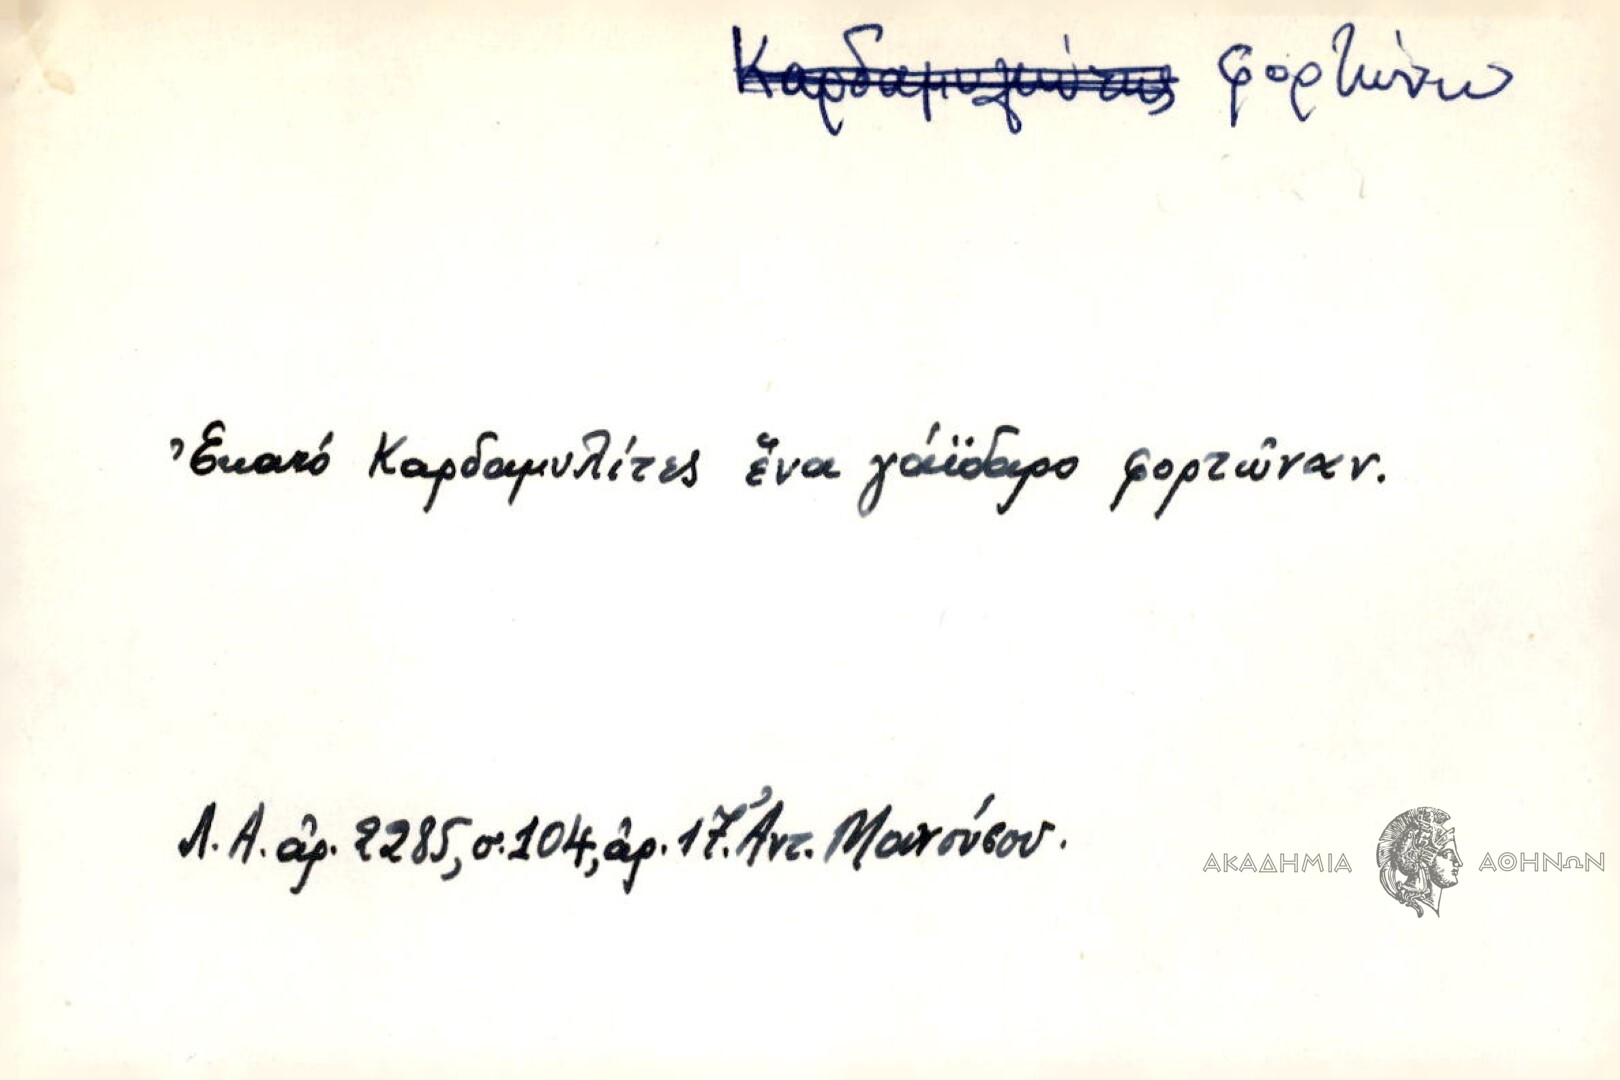 Καρδαμυλιώτης φορτώνω
Ἑκατό Καρδαμυλίτες ἕνα γάϊδαρο φορτῶναν.
Λ.Α. ἀρ. 2285, σ. 104, ἀρ. 17. Ἀντ. Μανούσου.
ΑΚΑΔΗΜΙΑ ΑΘΗΝΩΝ